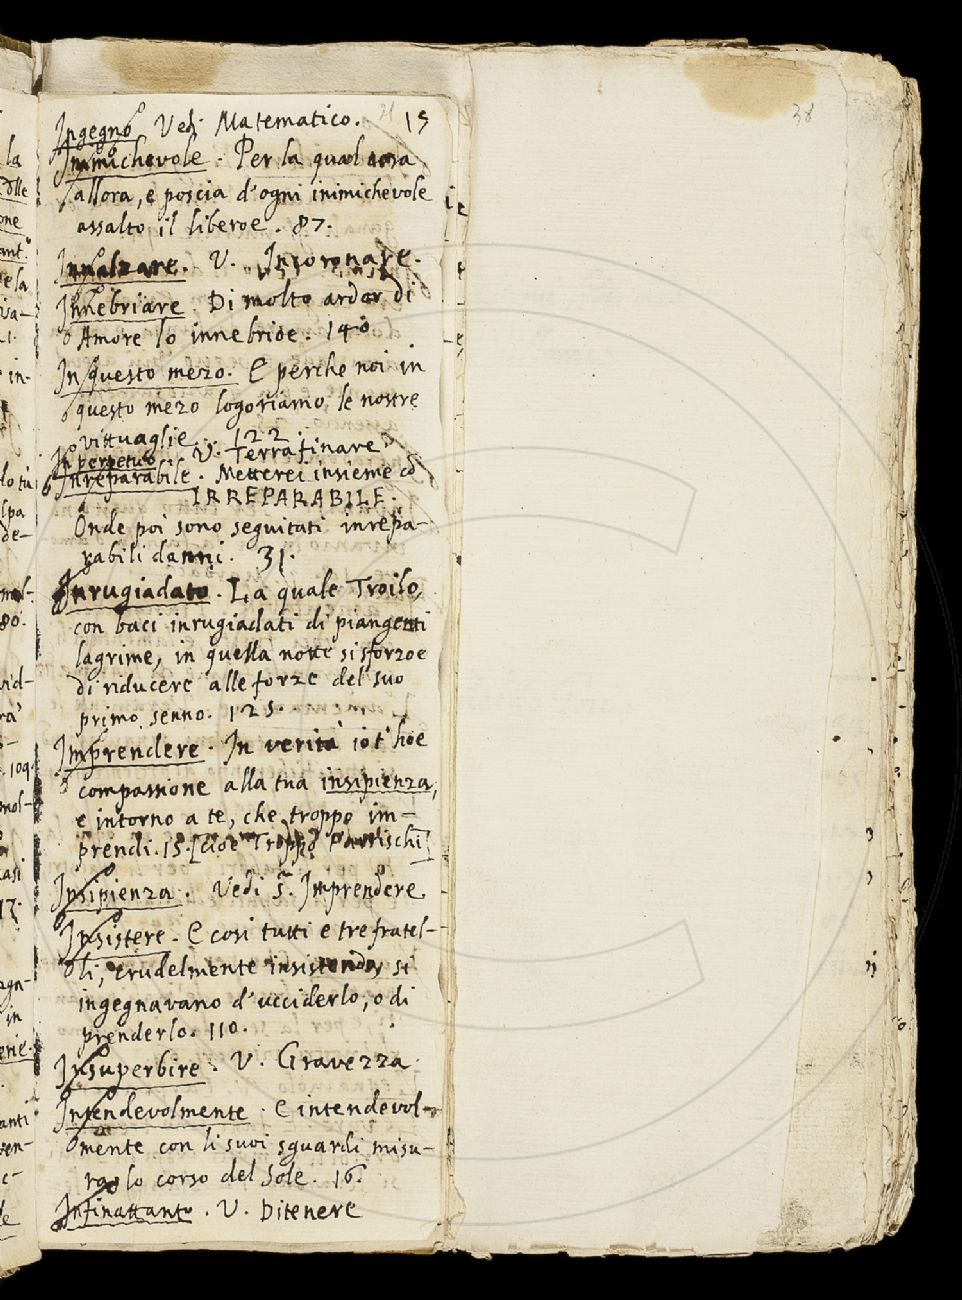 Ingegno Vedi Matematico. 15
38
Inimichevole. Per la qual cosa
allora, e poscia d'ogni inimichevole
assalto il liberoe. 87.
Innalzare. V. Incoronare.
Innebriare. Di molto ardor di
Amore lo innebrioe. 140
In questo mezo. E perche noi in
questo mezo logoriamo le nostre
vittuaglie. 122.
In perpetuo. V. Terrafinare
Inreparabile. Metterei insieme cō
IRREPARABILE.
Onde poi sono seguitati inrepa-
rabili danni. 31.
Inrugiadato. La quale Troilo,
con baci inrugiadati di piangenti
lagrime, in quella notte si sforzoe
di riducere alle forze del suo
primo senno. 125.
Imprendere. In verità io t'hoe
compassione alla tua insipienza,
e intorno a te, che troppo im-
prendi. 15. [Cioè Troppo
Insipienza. Vedi s. Imprendere.
Insistere. E cosi tutti e tre fratel-
li, crudelmente insistendo, si
ingegnavano d'ucciderlo, o di
prenderlo. 110.
Insuperbire. V. Gravezza
Intendevolmente. E intendevol-
mente con li suoi sguardi misu-
rao lo corso del Sole. 16.
Infinattanto. V. Ditenere